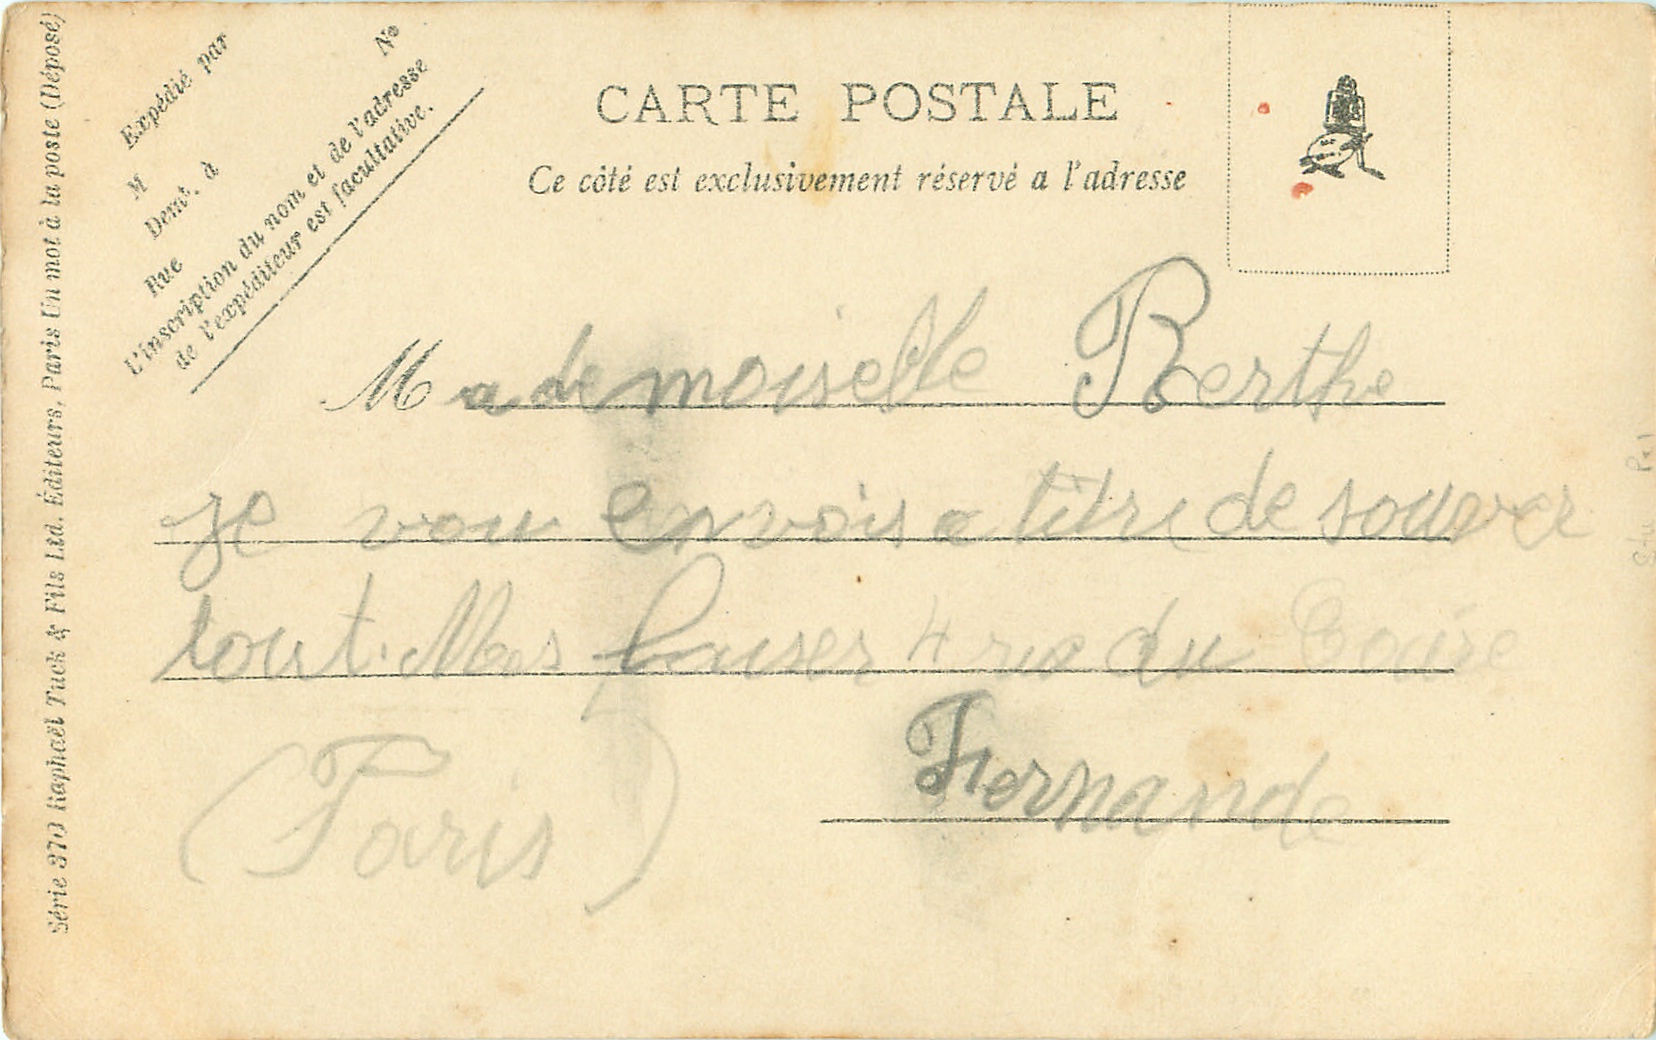 Série 370 Raphaël Tuck & Fils Ltd. Éditeurs, Paris Un mot à la poste (Déposé)
Expédié par
M
Demt. à
Rue
No
L'inscription du nom et de l'adresse
de l'expéditeur est facultative.
CARTE POSTALE
Ce côté est exclusivement réservé a l'adresse
Mademoiselle Berthe
Je vou envois a titre de souver
tout. Mes 4 rue du
Fernande
(Paris)